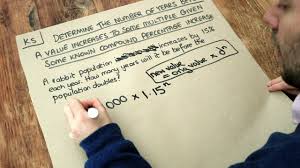 K5 DETERMINE THE NUMBER OF YEARS
A VALUE INCREASES TO SOME MULTIPLE GIVEN
SOME KNOWN COMPOUND PERCENTAGE INCREASE
A rabbit population increases by 15%
each year. How many years will it be before the
population doubles?
new value
= orig value × dⁿ
000 × 1.15ⁿ